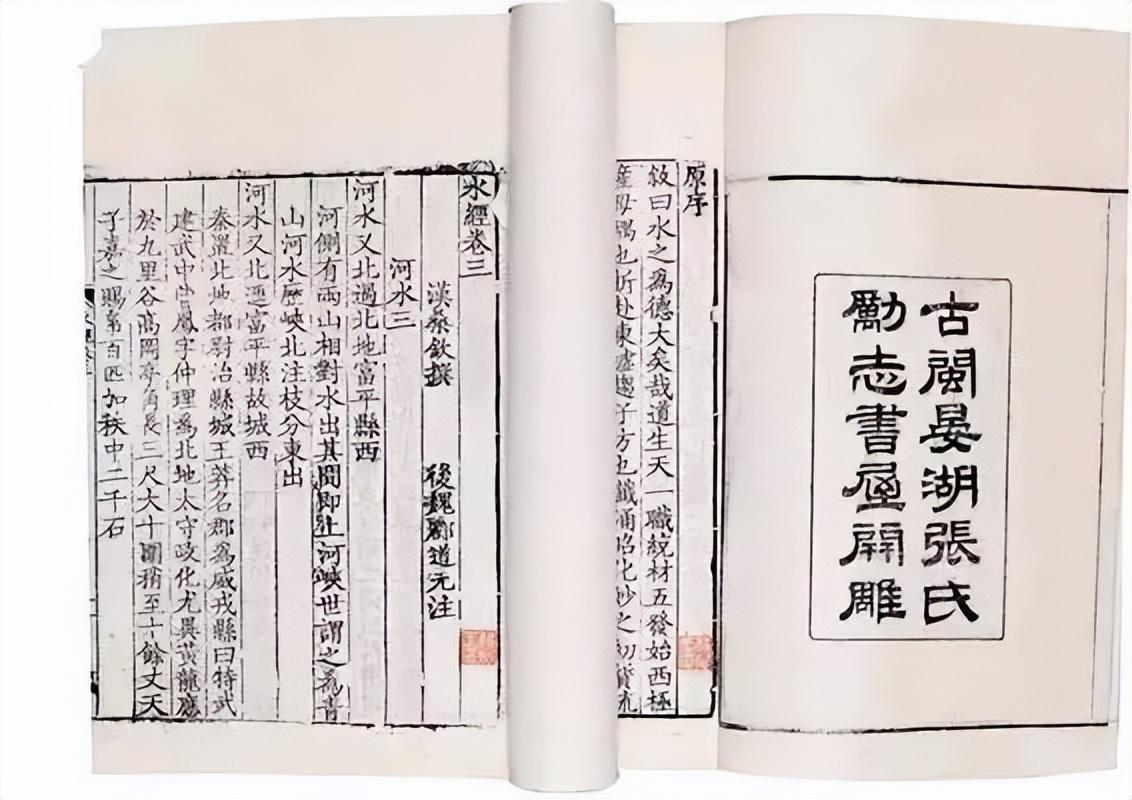 古閩晏湖張氏
勵志書屋開雕
原序
敘曰水之爲德大矣哉道生天一職統材五發始西極
水經卷三
漢桑欽撰 後魏酈道元注
河水三
河水又北過北地富平縣西
河側有兩山相對水出其間即上河峽世謂之爲青
山河水歷峽北注枝分東出
河水又北逕富平縣故城西
秦置北地都尉治縣城王莽名郡爲威戎縣曰特武
建武中曹鳳字仲理爲北地太守政化尤異黃龍應
於九里谷高岡亭角長三尺大十圍稍至十餘丈天
子嘉之賜帛百匹加秩中二千石